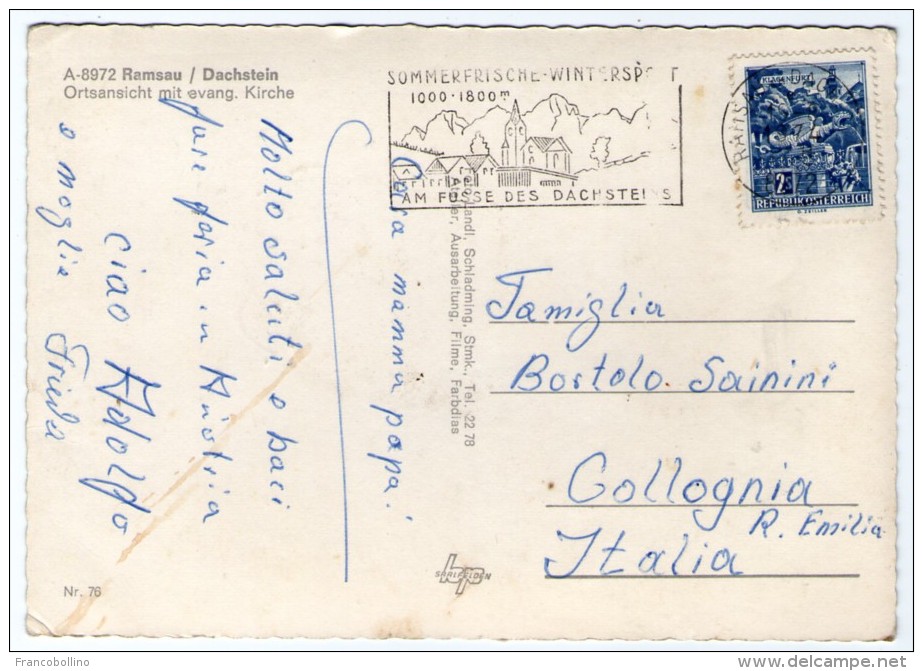 A-8972 Ramsau / Dachstein
Ortsansicht mit evang. Kirche
SOMMERFRISCHE-WINTERSPORT
1000-1800m
AM FUSSE DES DACHSTEINS
KLAGENFURT
2S
REPUBLIK ÖSTERREICH
Cara mamma papa!
Molto saluti e baci
fare feria in Austria
ciao Adolfo
e moglie Frieda
Schladming, Stmk., Tel. 22 78
Atelier, Ausarbeitung, Filme, Farbdias
Famiglia
Bortolo Sainini
Collognia
R. Emilia
Italia
bp
SAALFELDEN
Nr. 76
Francobollino
www.delcampe.net